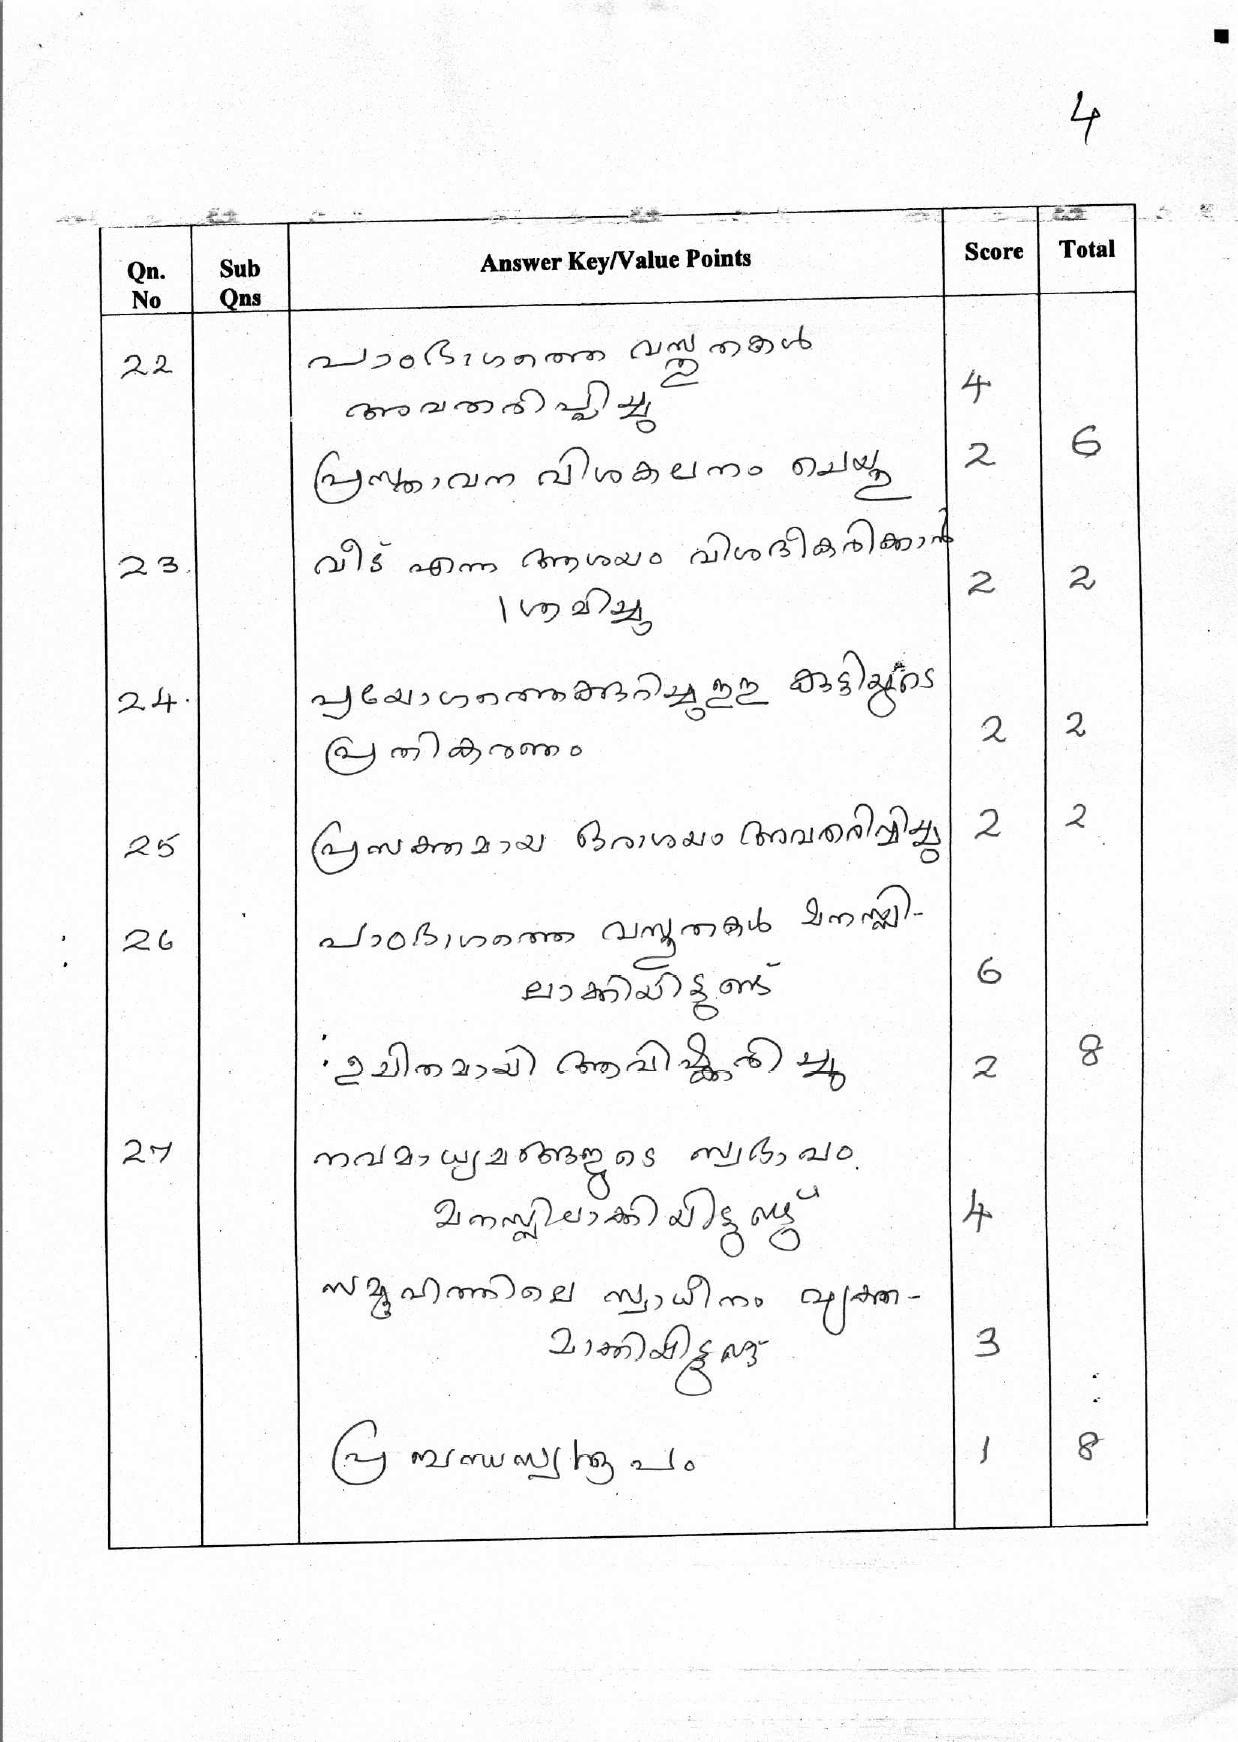 4
Qn. No	Sub Qns	Answer Key/Value Points	Score	Total
22 പാഠഭാഗത്തെ വസ്തുതകൾ
അവതരിപ്പിച്ചു 4
പ്രസ്താവന വിശകലനം ചെയ്തു 2 6
23. വീട് എന്ന ആശയം വിശദീകരിക്കാൻ
ശ്രമിച്ചു 2 2
24. പ്രയോഗത്തെക്കുറിച്ചുള്ള കുട്ടിയുടെ
പ്രതികരണം 2 2
25 പ്രസക്തമായ ഒരാശയം അവതരിപ്പിച്ചു 2 2
26 പാഠഭാഗത്തെ വസ്തുതകൾ മനസ്സി-
ലാക്കിയിട്ടുണ്ട് 6
ഉചിതമായി ആവിഷ്ക്കരിച്ചു 2 8
27 നവമാധ്യമങ്ങളുടെ സ്വഭാവം
മനസ്സിലാക്കിയിട്ടുണ്ട് 4
സമൂഹത്തിലെ സ്വാധീനം വ്യക്ത-
മാക്കിയിട്ടുണ്ട് 3
പ്രബന്ധസ്വരൂപം 1 8